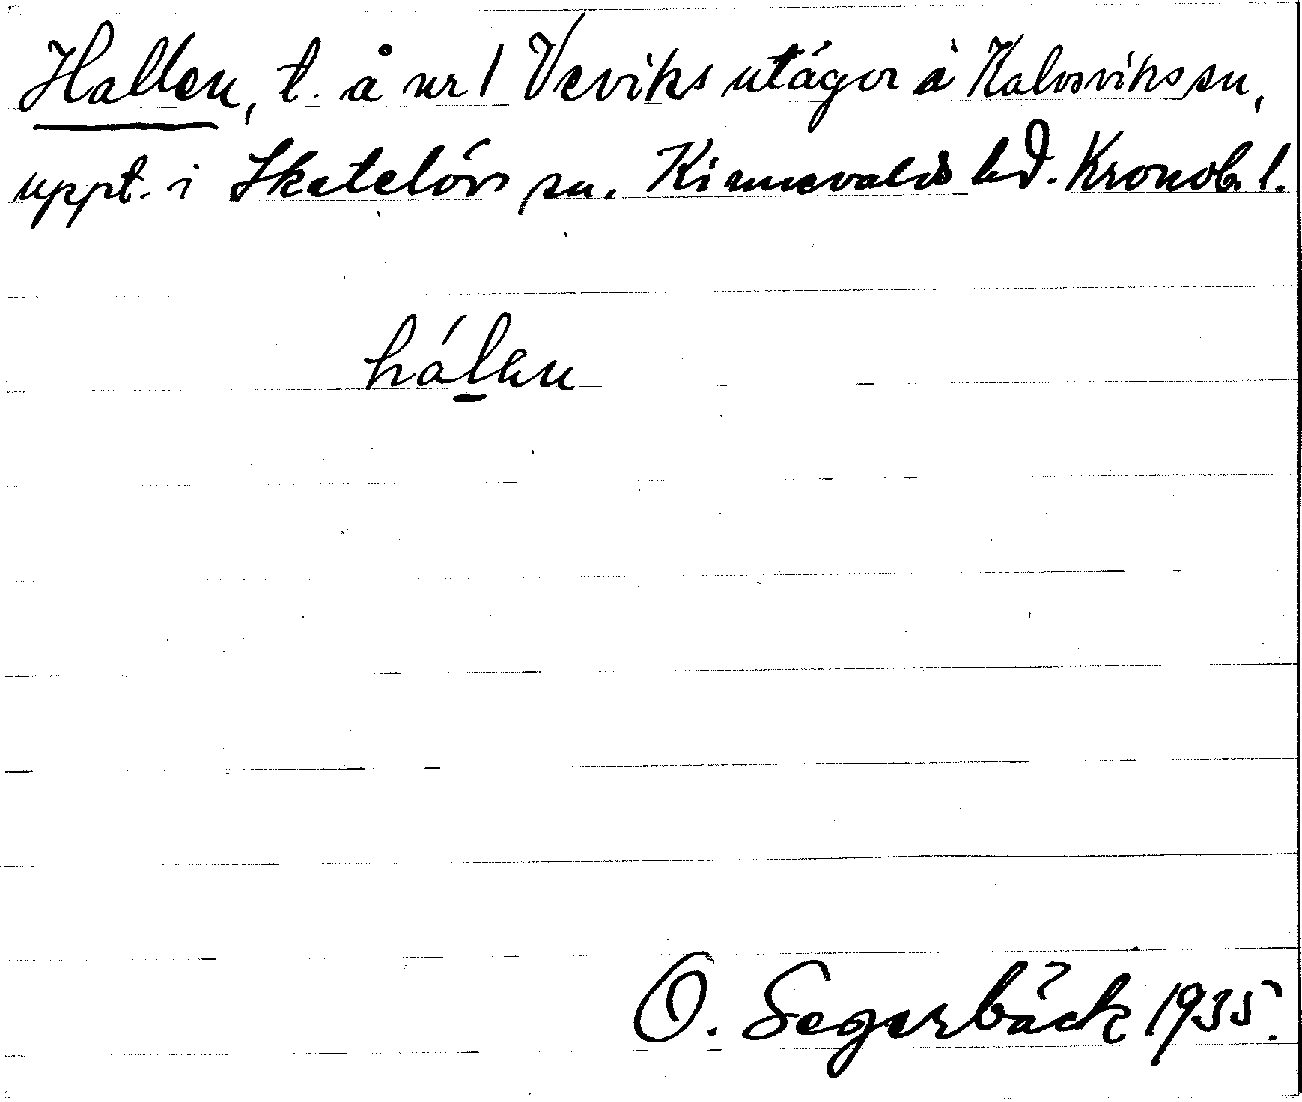 Hallen, t. å nr 1 Veviks utägor å Kalvsviks sn,
uppt. i Skatelövs sn. Kinnevalds hd. Kronob. l.
hálen
O. Segerbäck 1935.